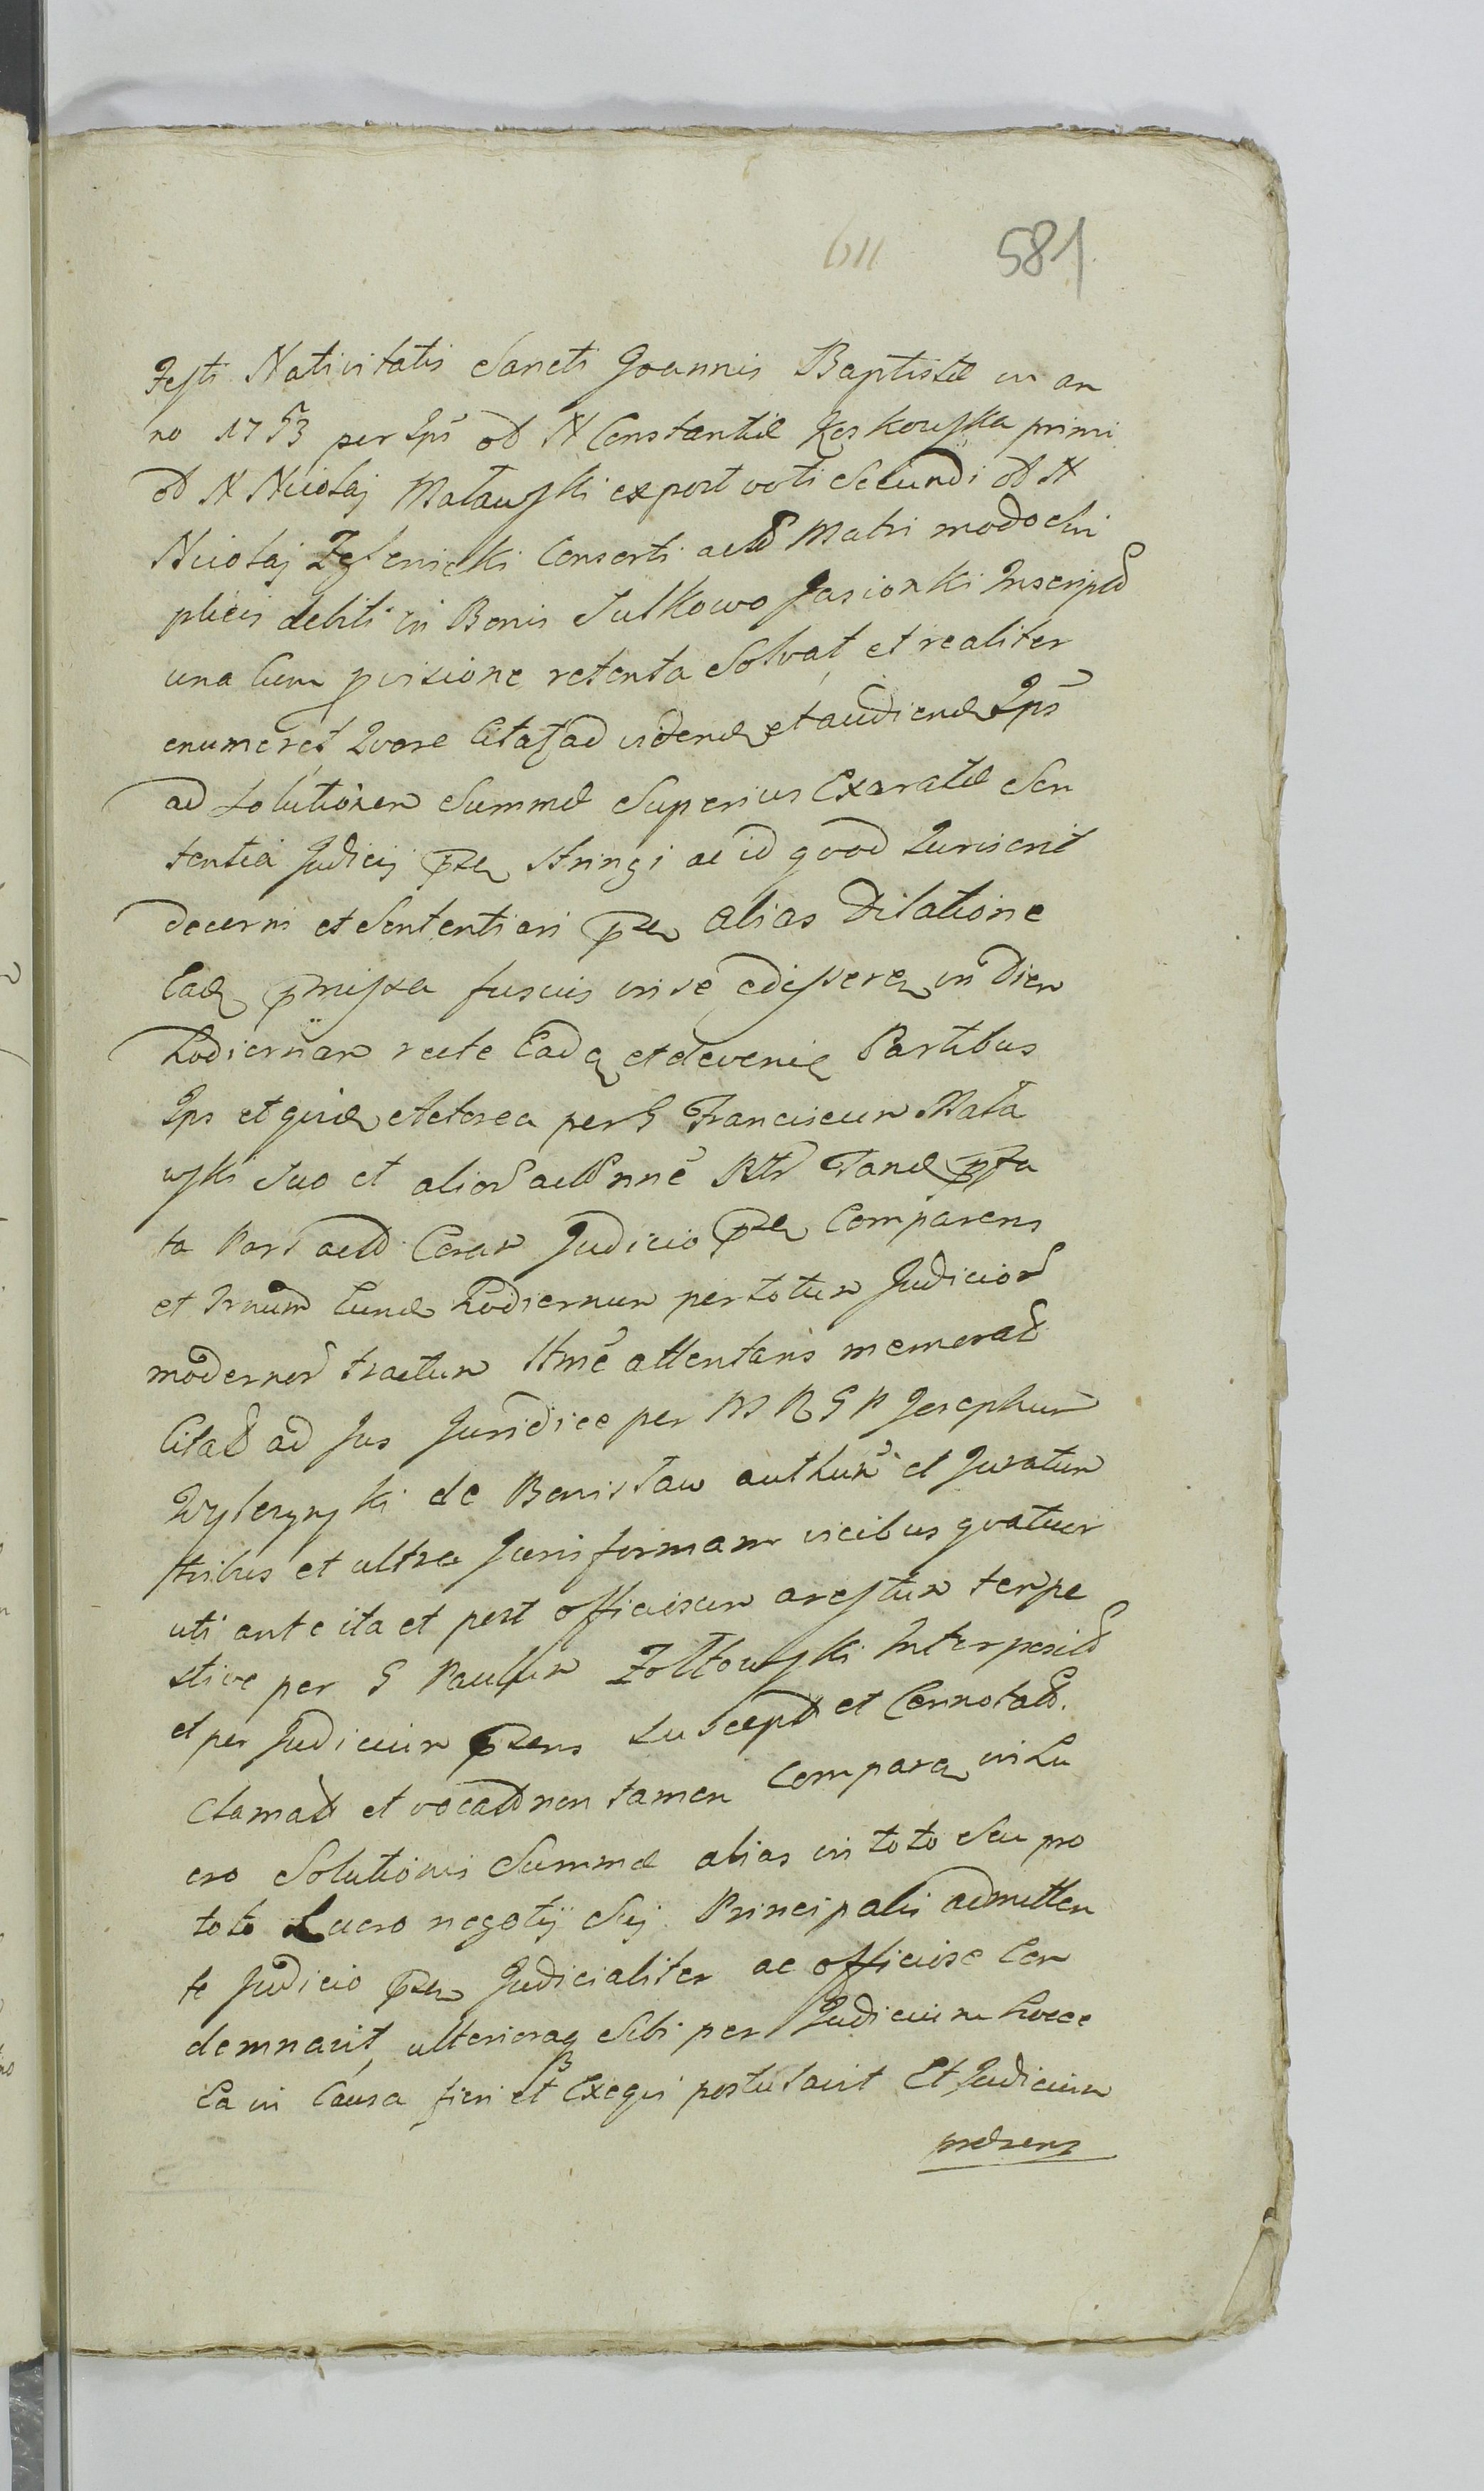 611 581
Festi Nativitatis Sancti Joannis Baptistæ in an
no 1753 per Ips ol N Constantiæ Koskowska primi
ol N Nicolaj Matawski ex post voti Secundi ol N
Nicolaj Zglenicki Consorti act Matri modo Sim
plicis debiti in Bonis Sulkowo Jasionki Inscript
una cum pvisione retenta Solvat et realiter
enumeret Quare Citat ad vidend et audiend Ips
ad Solutionem Summæ Superius Exaratæ Sen
tentia Judicij pze stringi ac id quod Juris erit
decerni et Sententiari alias Dilatione
Ead pmissa fusius in se edissere in Diem
hodiernam recte Cade et deveni Partibus
Ips et quid Actorea per G Franciscum Mata
wski Suo et alior act nne Ptr Tand pfa
ta Pars act Coram Judicio pze Comparens
et Trnum Eund hodiernum per totum Judicior
modernor tractum Itme attentans memorat
Citat ad Jus Juridice per M R G P Josephum
de Bonislaw authum et Juratum
tribus et ultra Juris formam vicibus quatuor
uti ante ita et post officiosum arestum tempe
stive per G Paulum Zoltowski Interposit
et per Judicium pzens Suscept et Connotat.
Clamat et vocat non tamen Compare in Lu
cro Solutionis Summæ alias in toto Seu pro
toto Lucro negotij Sui Principalis admitten
te Judicio pze Judicialiter ac officiose Con
demnavit, ulterioraq Sibi per Judicium hocce
Ea in Causa fieri et Exequi postulavit Et Judicium
præsens